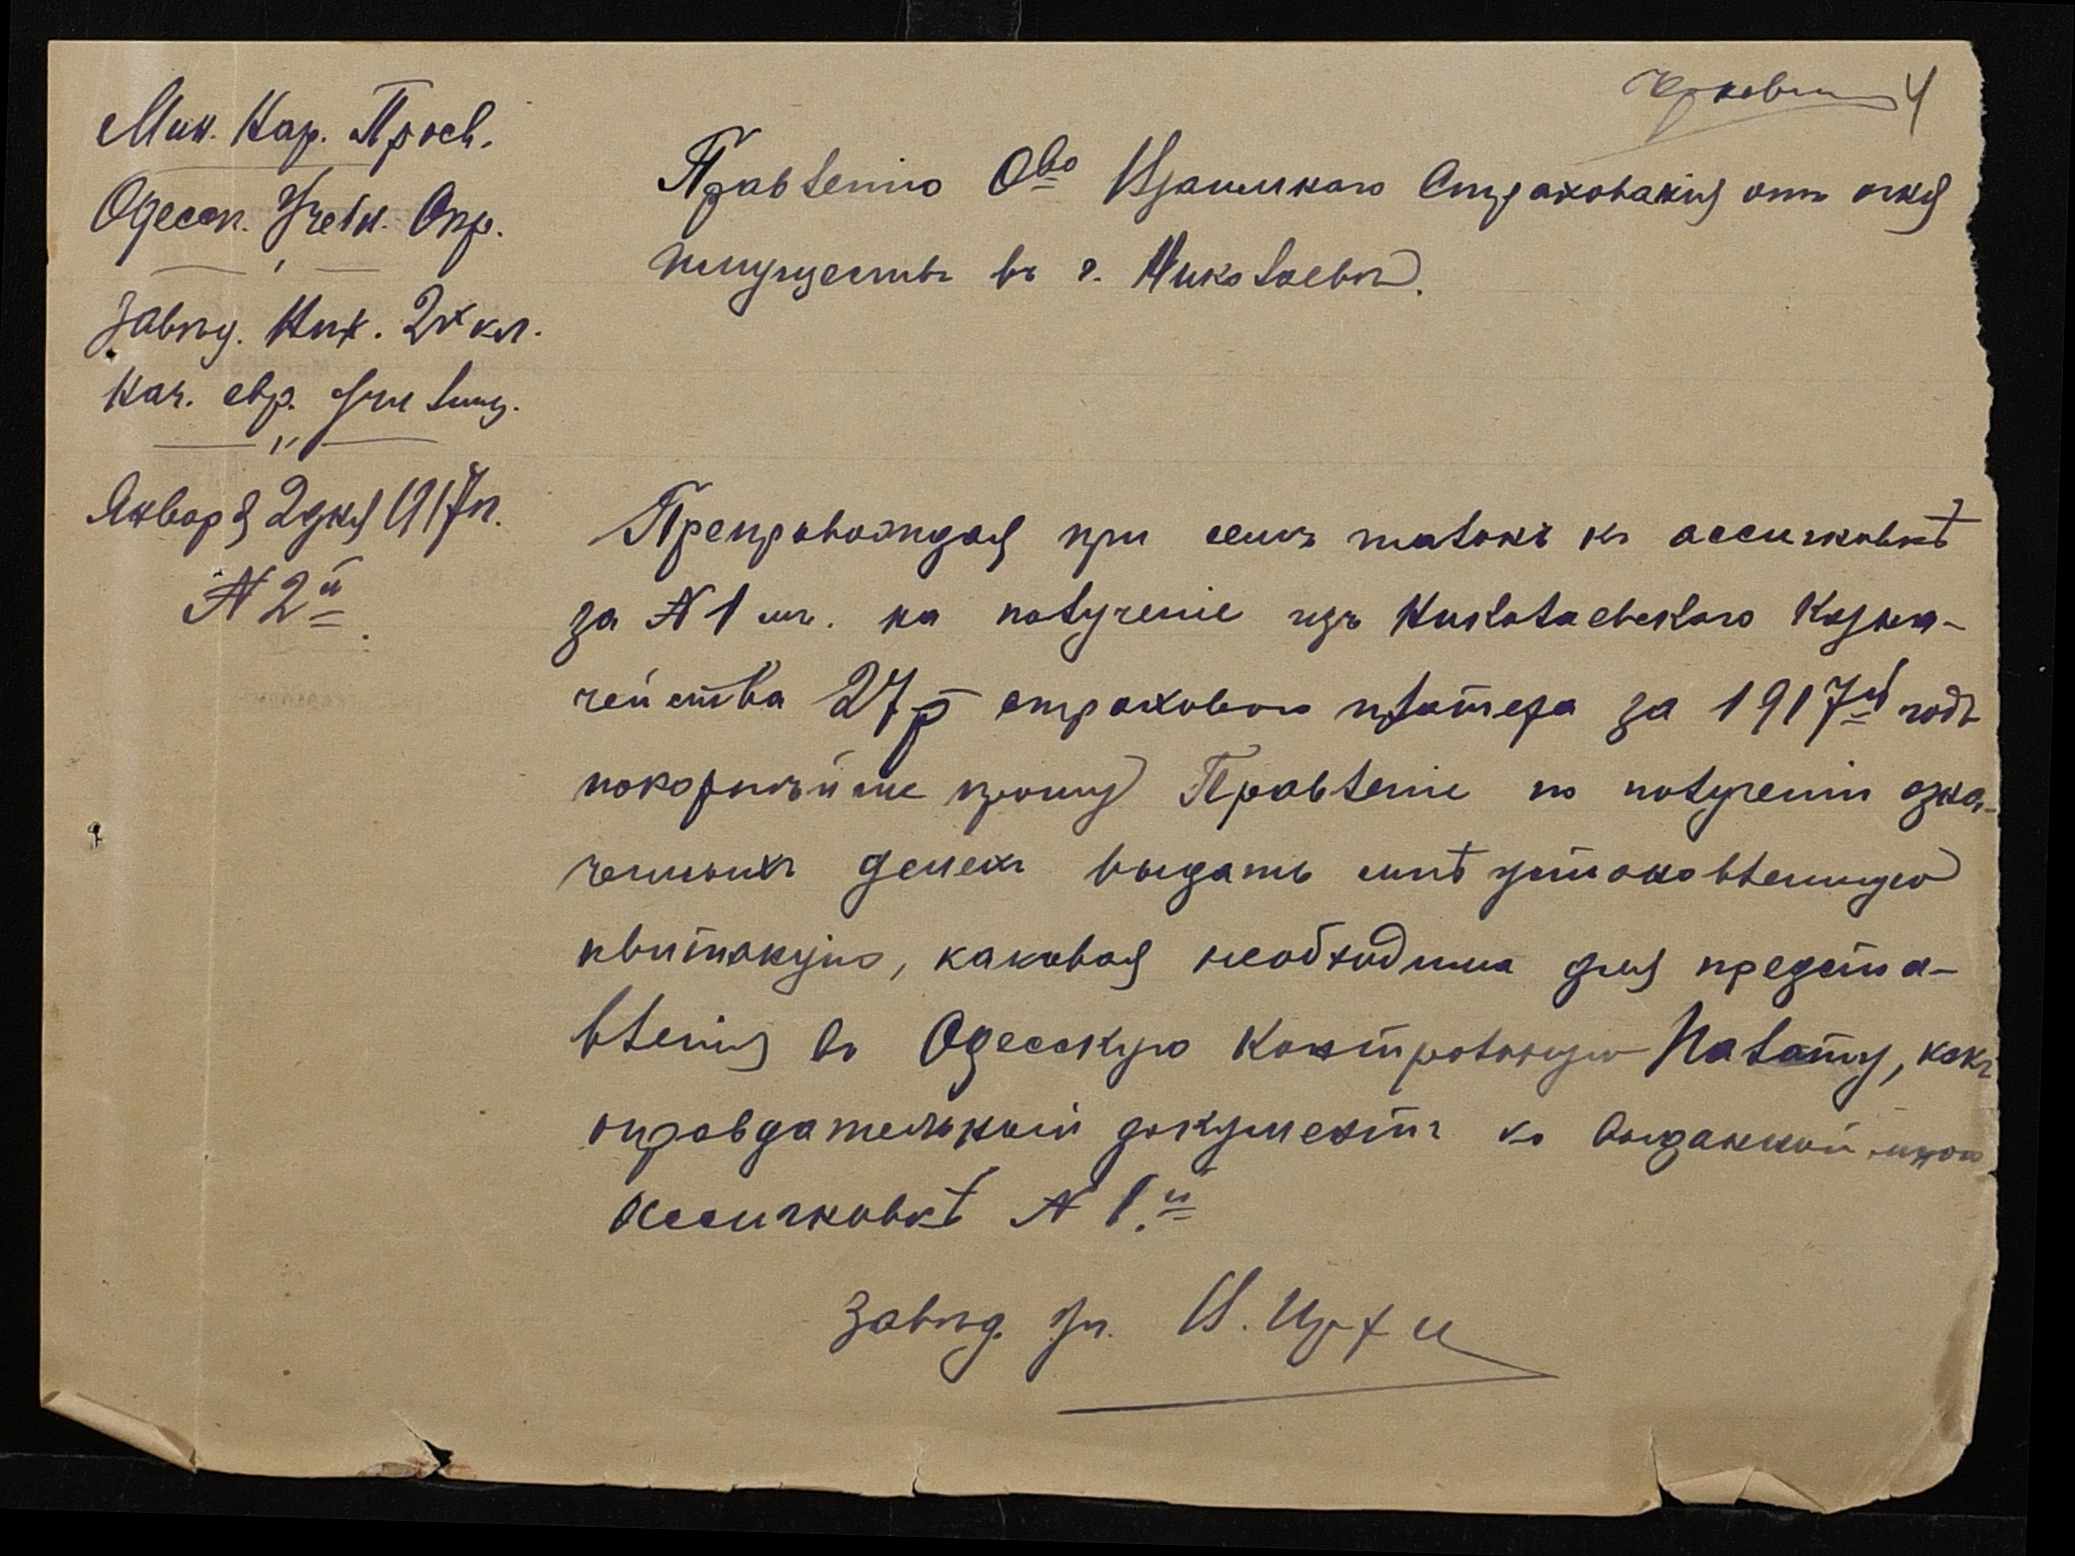 Мин. Нар. Просв.
Одесск. Учебн. Окр.
Завѣд. Ник. 2х кл.
нач. евр. училищ.
Января 2 дня 1917 г.
№ 2й
4
Правленію Ова Взаимнаго Страхованія отъ огня
имуществъ въ г. Николаевѣ.
Препровождая при семъ талонъ къ ассигновкѣ
за № 1 мъ. на полученіе изъ Николаевскаго Казна-
чейства 27 р страхового платежа за 1917й годъ
покорнѣйше прошу Правленіе по полученіи озна-
ченныхъ денегъ выдать мнѣ установленную
квитанцію, каковая необходима для предста-
вленія въ Одесскую Контрольную Палату, какъ
оправдательный документъ къ выданной мною
ассигновкѣ № 1.й
Завѣд. уч.